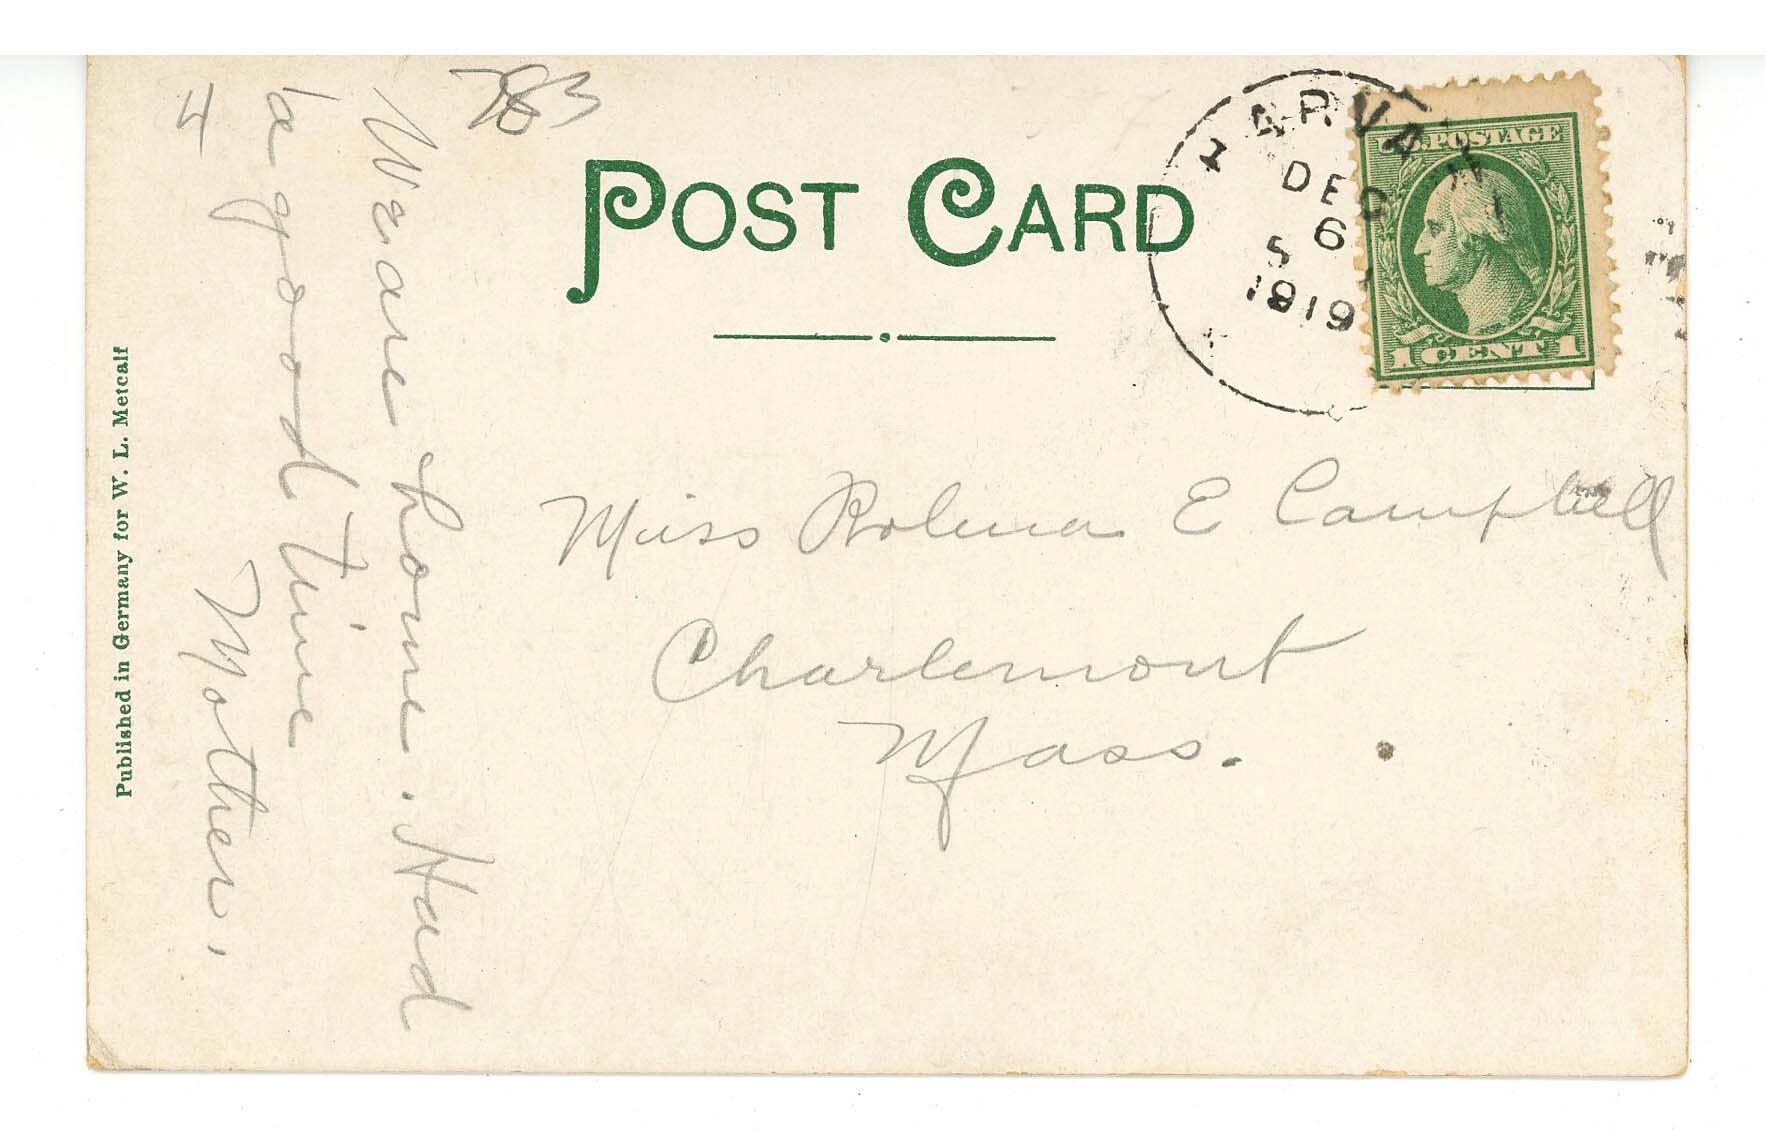 783
4
POST CARD
HARVA
DEC
6
5
1919
U.S. POSTAGE
1 CENT 1
We are home. Had
a good time
Mother.
Miss Rolena E Campbell
Charlemont
Mass.
Published in Germany for W. L. Metcalf